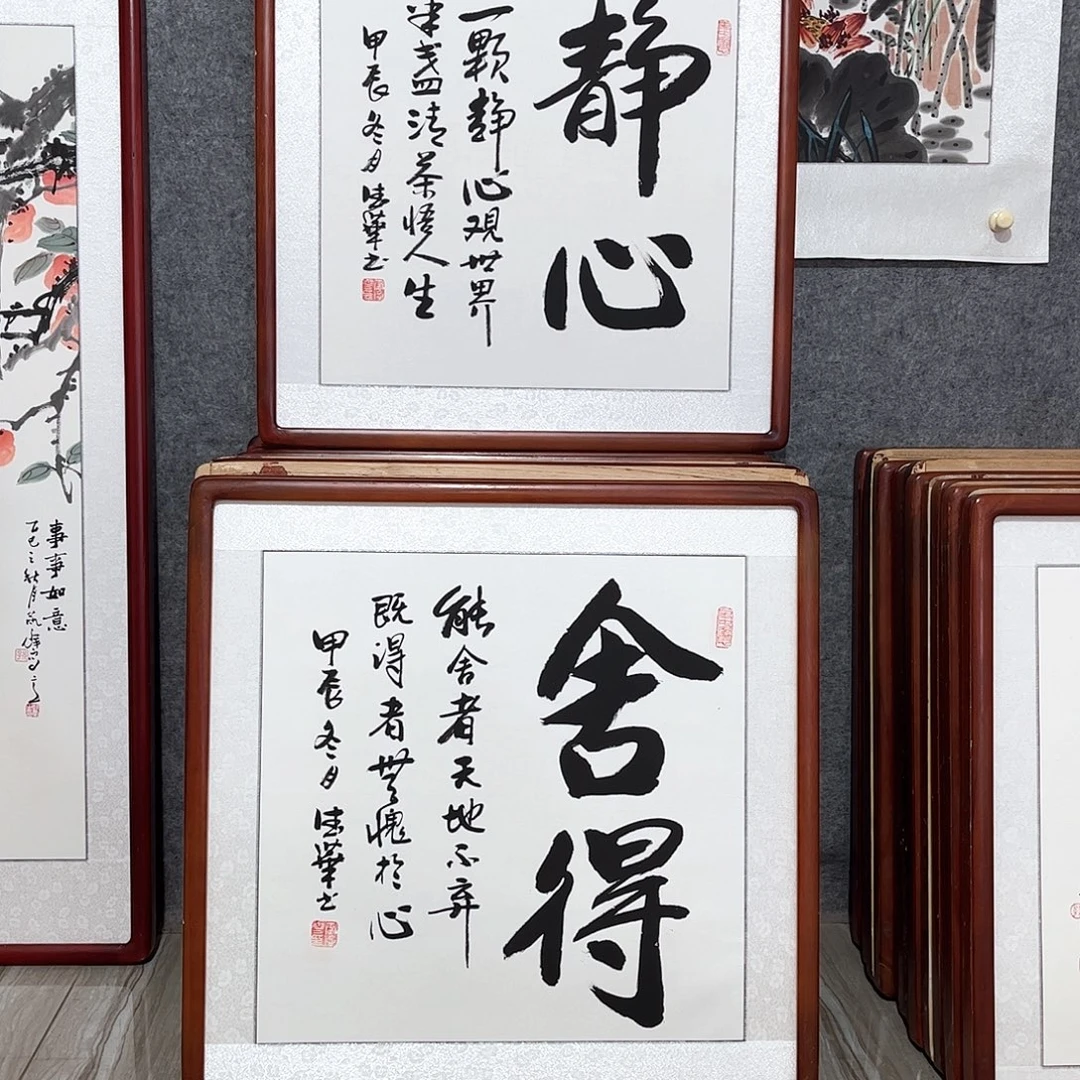 静心
一颗静心观世界
半盏清茶悟人生
甲辰冬月德華书
舍得
能舍者天地不弃
既得者無愧於心
甲辰冬月德華书
事事如意